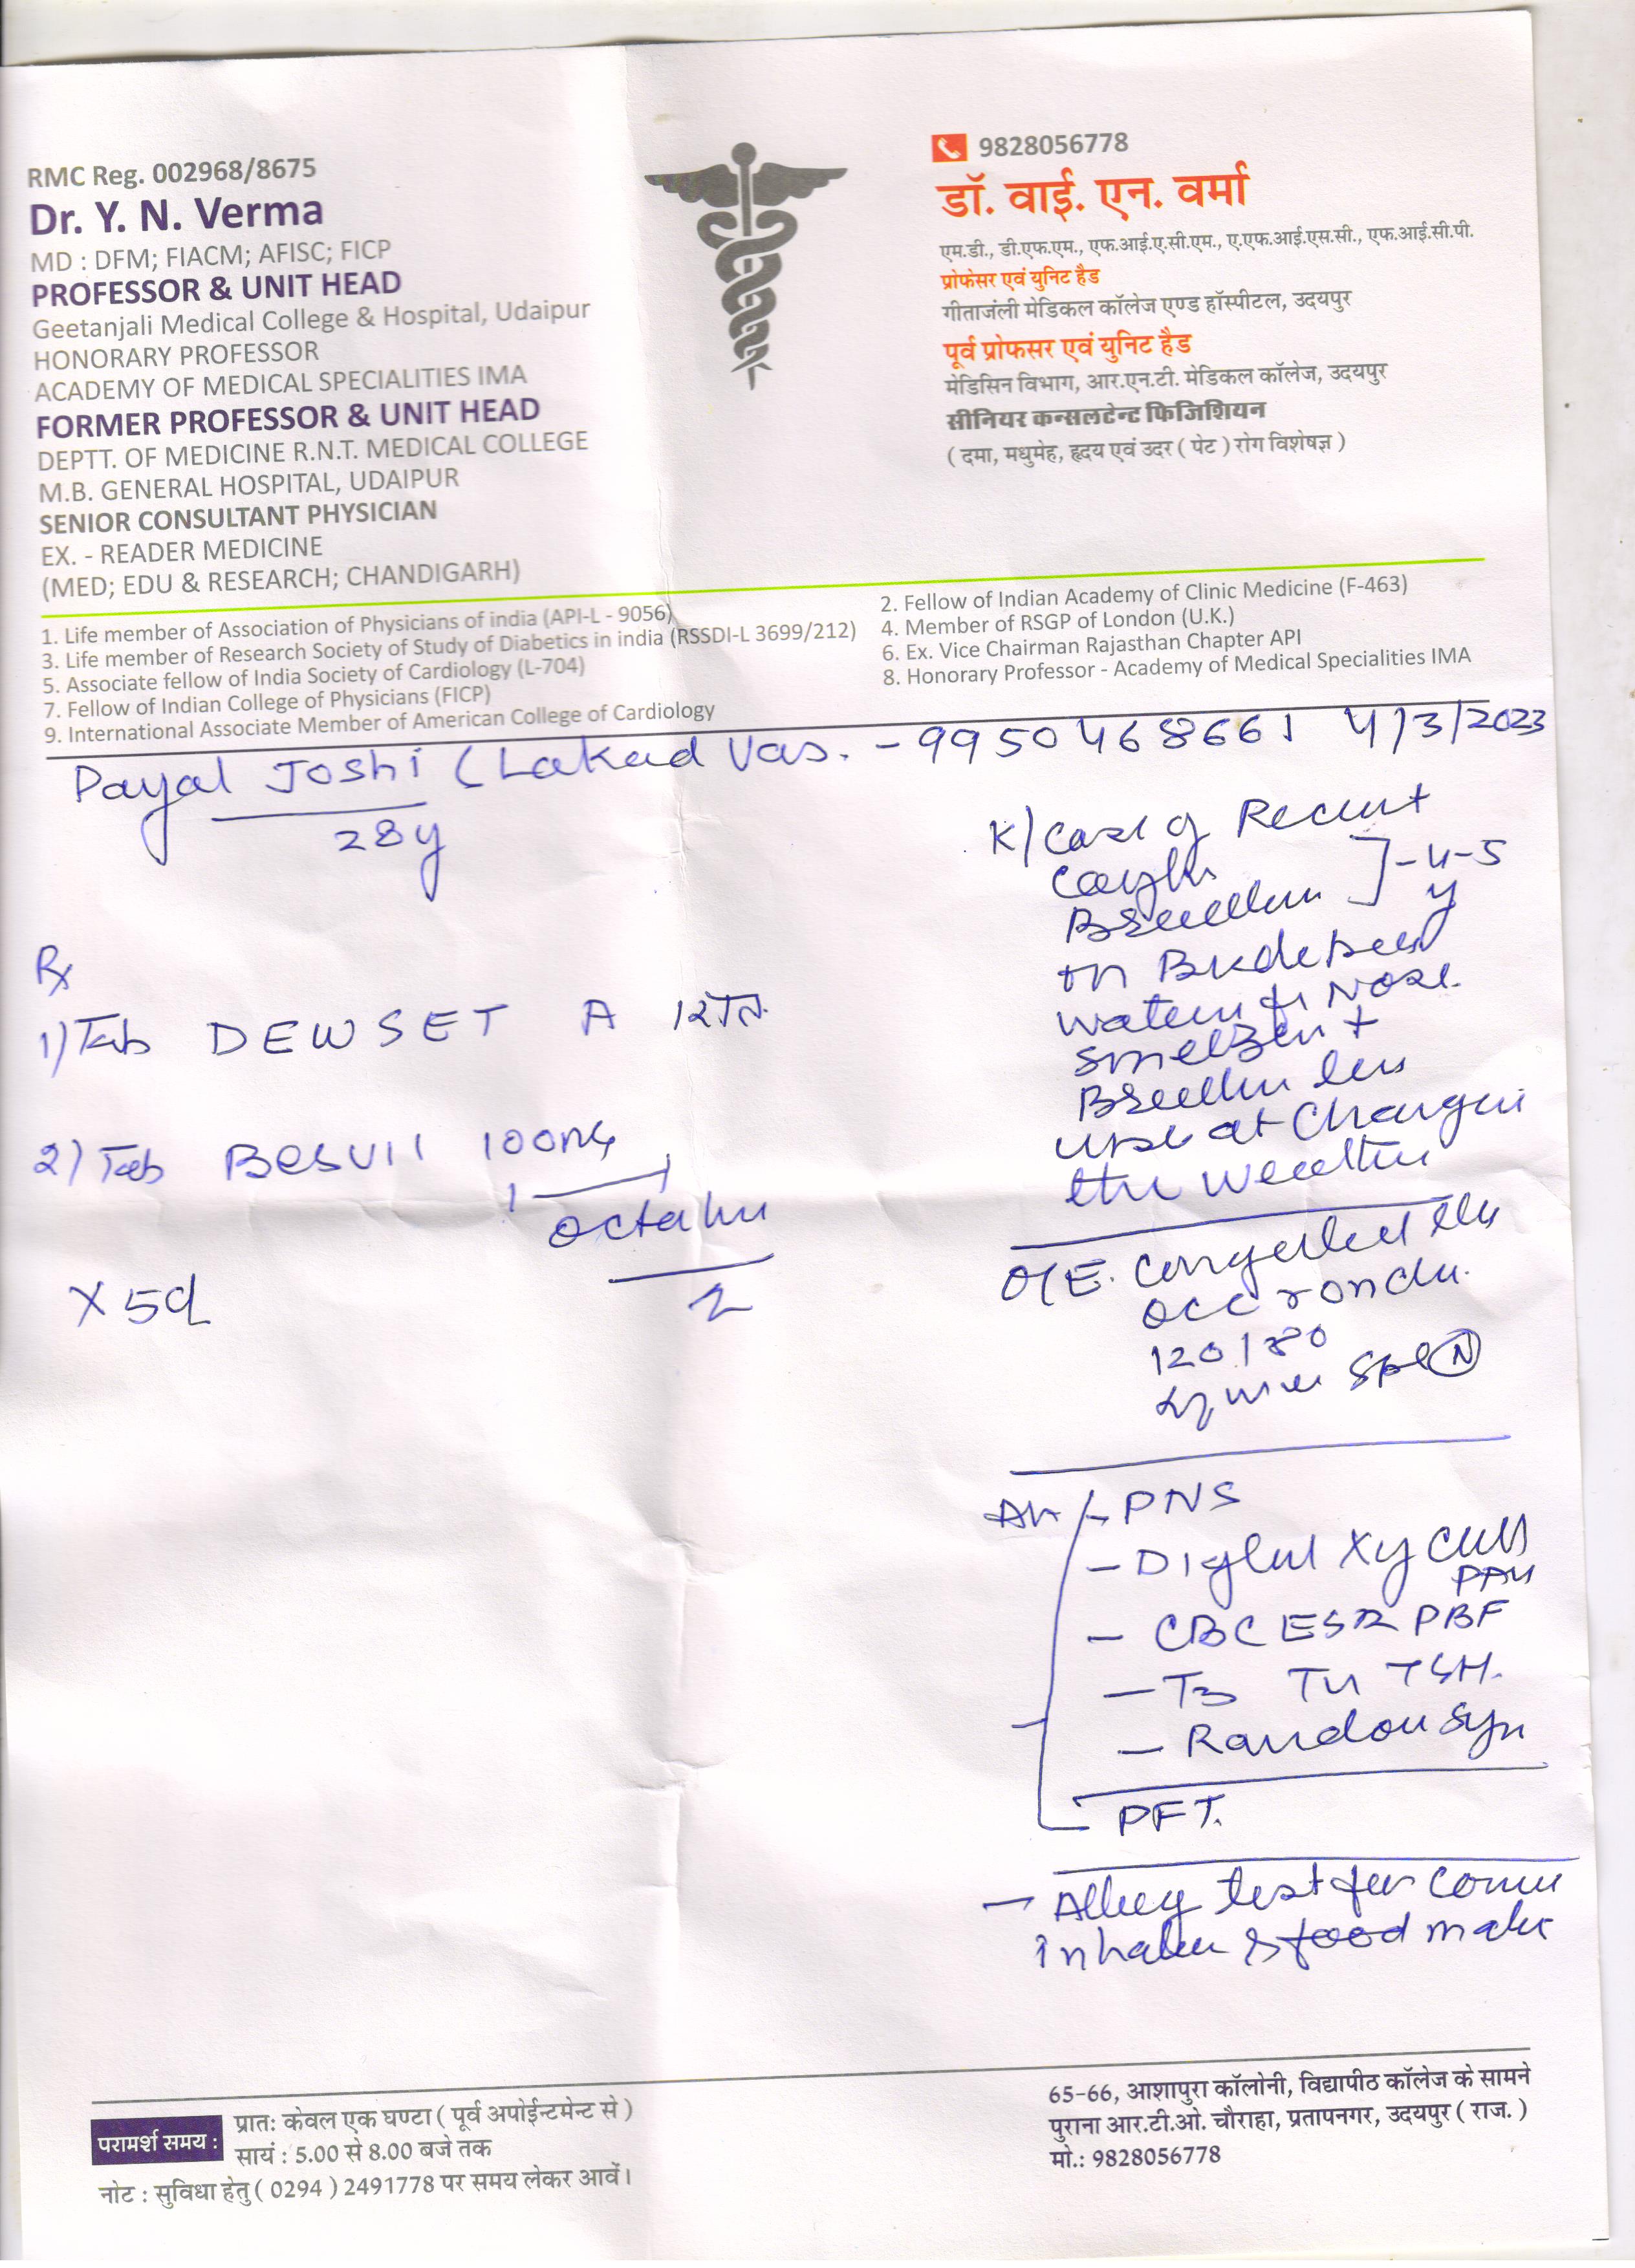 RMC Reg. 002968/8675
Dr. Y. N. Verma
MD : DFM; FIACM; AFISC; FICP
PROFESSOR & UNIT HEAD
Geetanjali Medical College & Hospital, Udaipur
HONORARY PROFESSOR
ACADEMY OF MEDICAL SPECIALITIES IMA
FORMER PROFESSOR & UNIT HEAD
DEPTT. OF MEDICINE R.N.T. MEDICAL COLLEGE
M.B. GENERAL HOSPITAL, UDAIPUR
SENIOR CONSULTANT PHYSICIAN
EX. - READER MEDICINE
(MED; EDU & RESEARCH; CHANDIGARH)
9828056778
डॉ. वाई. एन. वर्मा
एम.डी., डी.एफ.एम., एफ.आई.ए.सी.एम., ए.एफ.आई.एस.सी., एफ.आई.सी.पी.
प्रोफेसर एवं युनिट हैड
गीताजंली मेडिकल कॉलेज एण्ड हॉस्पीटल, उदयपुर
पूर्व प्रोफसर एवं युनिट हैड
मेडिसिन विभाग, आर.एन.टी. मेडिकल कॉलेज, उदयपुर
सीनियर कन्सलटेन्ट फिजिशियन
( दमा, मधुमेह, हृदय एवं उदर ( पेट ) रोग विशेषज्ञ )
1. Life member of Association of Physicians of india (API-L - 9056)
2. Fellow of Indian Academy of Clinic Medicine (F-463)
3. Life member of Research Society of Study of Diabetics in india (RSSDI-L 3699/212)
4. Member of RSGP of London (U.K.)
5. Associate fellow of India Society of Cardiology (L-704)
6. Ex. Vice Chairman Rajasthan Chapter API
7. Fellow of Indian College of Physicians (FICP)
8. Honorary Professor - Academy of Medical Specialities IMA
9. International Associate Member of American College of Cardiology
Payal Joshi (Lakad Vas. - 9950468661 4/3/2023
28y
Rx
1) Tab DEWSET A
2) Tab 100mg
X 5d
2
K/Case of Recurrt
Cough
-4-5
y
on
Nose
at Changin
the weather
O/E. Congested
occ ronchi.
120/80
N
PNS
- Digital Xy
PAV
- CBC ESR PBF
- T3 T4 TSH.
- Random
PFT.
- test for
& food
परामर्श समय :
प्रातः केवल एक घण्टा ( पूर्व अपोईन्टमेन्ट से )
सायं : 5.00 से 8.00 बजे तक
नोट : सुविधा हेतु ( 0294 ) 2491778 पर समय लेकर आवें।
65-66, आशापुरा कॉलोनी, विद्यापीठ कॉलेज के सामने
पुराना आर.टी.ओ. चौराहा, प्रतापनगर, उदयपुर ( राज. )
मो.: 9828056778